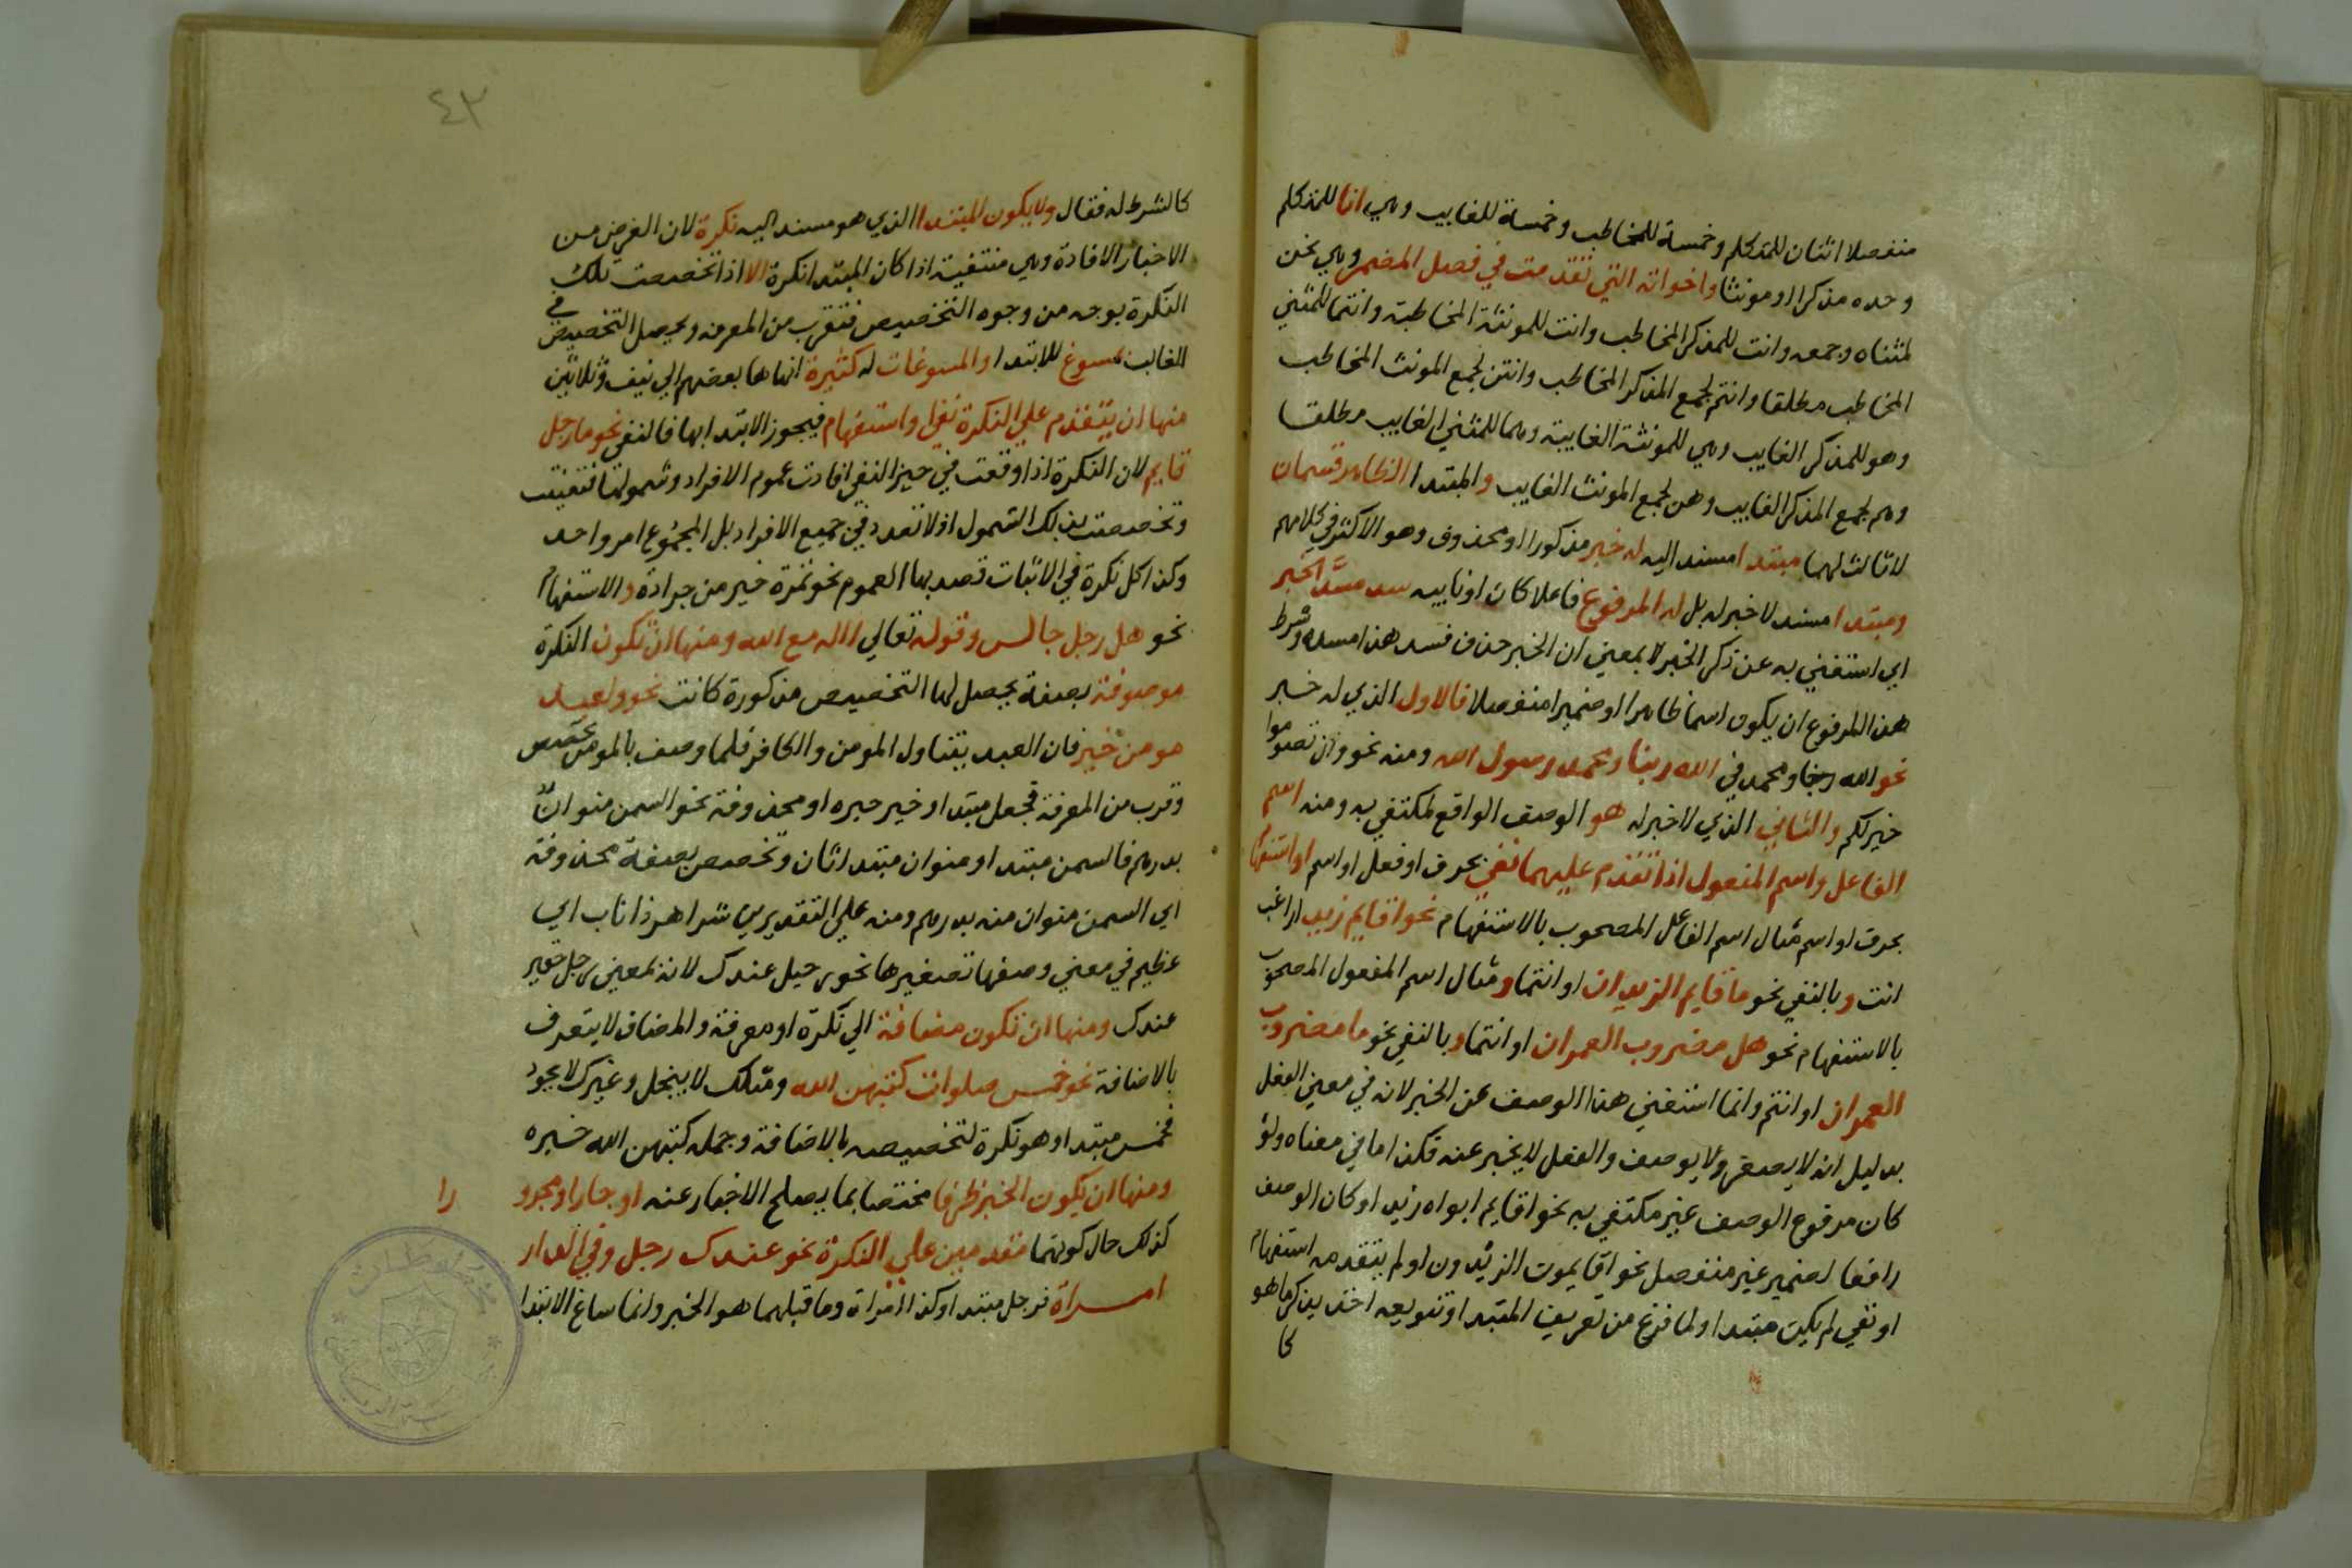 منفصلا اثنان للمتكلم وخمسة للمخاطب وخمسة للغايب وهي انا للمتكلم
وحده مذكرا او مونثا واخواته التي تقدمت في فصل المضمر وهي نحن
لمثناه وجمعه وانت للمذكر المخاطب وانت للمونثة المخاطبة وانتما للمثني
المخاطب مطلقا وانتم لجمع المذكر المخاطب وانتن لجمع المونث المخاطب
وهو للمذكر الغايب وهي للمونثة الغايبة وهما للمثني الغايب مطلقا
وهم لجمع المذكر الغايب وهن لجمع المونث الغايب والمبتدا الظاهر قسمان
لا ثالث لهما مبتدا مسند اليه له خبر مذكورا او محذوف وهو الاكثر في كلامهم
ومبتدا مسند لا خبر له بل له المرفوع فاعلا كان او نايبه سد مسد الخبر
اي استغني به عن ذكر الخبر لا بمعني ان الخبر حذف فسد هذا مسده وشرط
هذا المرفوع ان يكون اسما ظاهرا او ضميرا منفصلا فالاول الذي له خبر
نحو الله ربنا ومحمد في الله ربنا ومحمد رسول الله ومنه نحو وان تصوموا
خير لكم والثاني الذي لا خبر له هو الوصف الواقع لمكتفي به ومنه اسم
الفاعل واسم المفعول اذا تقدم عليهما نفي بحرف او فعل او اسم او استفهام
بحرف او اسم مثال اسم الفاعل المصحوب بالاستفهام نحو اقايم زيد اراغب
انت وبالنفي نحو ما قايم الزيدان او انتما ومثال اسم المفعول المصحوب
بالاستفهام نحو هل مضروب العمران او انتما وبالنفي نحو ما مضروب
العمران او انتم وانما استغني هذا الوصف عن الخبر لانه في معني الفعل
بدليل انه لا يصغر ولا يوصف والفعل لا يخبر عنه فكذا ما في معناه ولو
كان مرفوع الوصف غير مكتفي به نحو اقايم ابواه زيد او كان الوصف
رافعا لضمير غير منفصل نحو اقايموت الزيدون او لم يتقدمه استفهام
او نفي لم يكن مبتدا ولما فرغ من تعريف المبتدا وتنويعه اخذ يذكر ما هو
كا
٤٣
كالشرط له فقال ولا يكون المبتدا الذي هو مسند اليه نكرة لان الغرض من
الاخبار الافادة وهي منتفية اذا كان المبتدا نكرة الا اذا تخصصت تلك
النكرة بوجه من وجوه التخصيص فتقرب من المعرفه ويحصل التخصيص في
الغالب بمسوغ للابتدا والمسوغات له كثيرة انهاها بعضهم الي نيف وثلاثين
منها ان يتقدم علي النكرة نفي واستفهام فيجوز الابتدا بها فالنفي نحو ما رجل
قايم لان النكرة اذا وقعت في حيز النفي افادت عموم الافراد وشمولها فتعينت
وتخصصت بذلك الشمول اذ لا تعدد في جميع الافراد بل المجموع امر واحد
وكذا كل نكرة في الاثبات قصد بها العموم نحو تمرة خير من جرادة والاستفهام
نحو هل رجل جالس وقوله تعالي االه مع الله ومنها ان تكون النكرة
موصوفة بصفة يحصل لها التخصيص مذكورة كانت نحو ولعبد
مومن خير فان العبد يتناول المومن والكافر فلما وصف بالمومن تخصص
وقرب من المعرفة فجعل مبتدا وخير خبره او محذوفة نحو السمن منوان
بدرهم فالسمن مبتدا ومنوان مبتدا ثان وتخصص بصفة محذوفة
اي السمن منوان منه بدرهم ومنه علي التقديرين شر اهر ذا ناب اي
عظيم في معني وصفها تصغيرها نحو رجيل عندك لانه بمعني رجل حقير
عندك ومنها ان تكون مضافة الي نكرة او معرفة والمضاف لا يتعرف
بالاضافة نحو خمس صلوات كتبهن الله ومثلك لا يبخل وغيرك لا يجود
فخمس مبتدا وهو نكرة لتخصيصه بالاضافة وجمله كتبهن الله خبره
ومنها ان يكون الخبر ظرفا مختصا بما يصلح الاخبار عنه او جارا ومجرو را
كذلك حال كونهما متقدمين علي النكرة نحو عندك رجل وفي الدار
امراة فرجل مبتدا وكذا امراة وما قبلهما هو الخبر وانما ساغ الابتدا